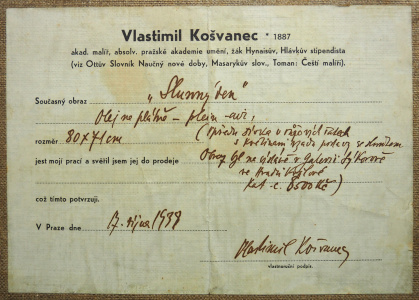 Vlastimil Košvanec * 1887
akad. malíř, absolv. pražské akademie umění, žák Hynaisův, Hlávkův stipendista
(viz Ottův Slovník Naučný nové doby, Masarykův slov., Toman: Čeští malíři).
Současný obraz „Slunný den"
Olej na plátně – plein-air,
rozměr 80x71cm
jest moji prací a svěřil jsem jej do prodeje
Obraz byl na výstavě v Galerii
8500 Kč)
což tímto potvrzuji.
V Praze dne 17. října 1938
Vlastimil Košvanec
vlastnoruční podpis.